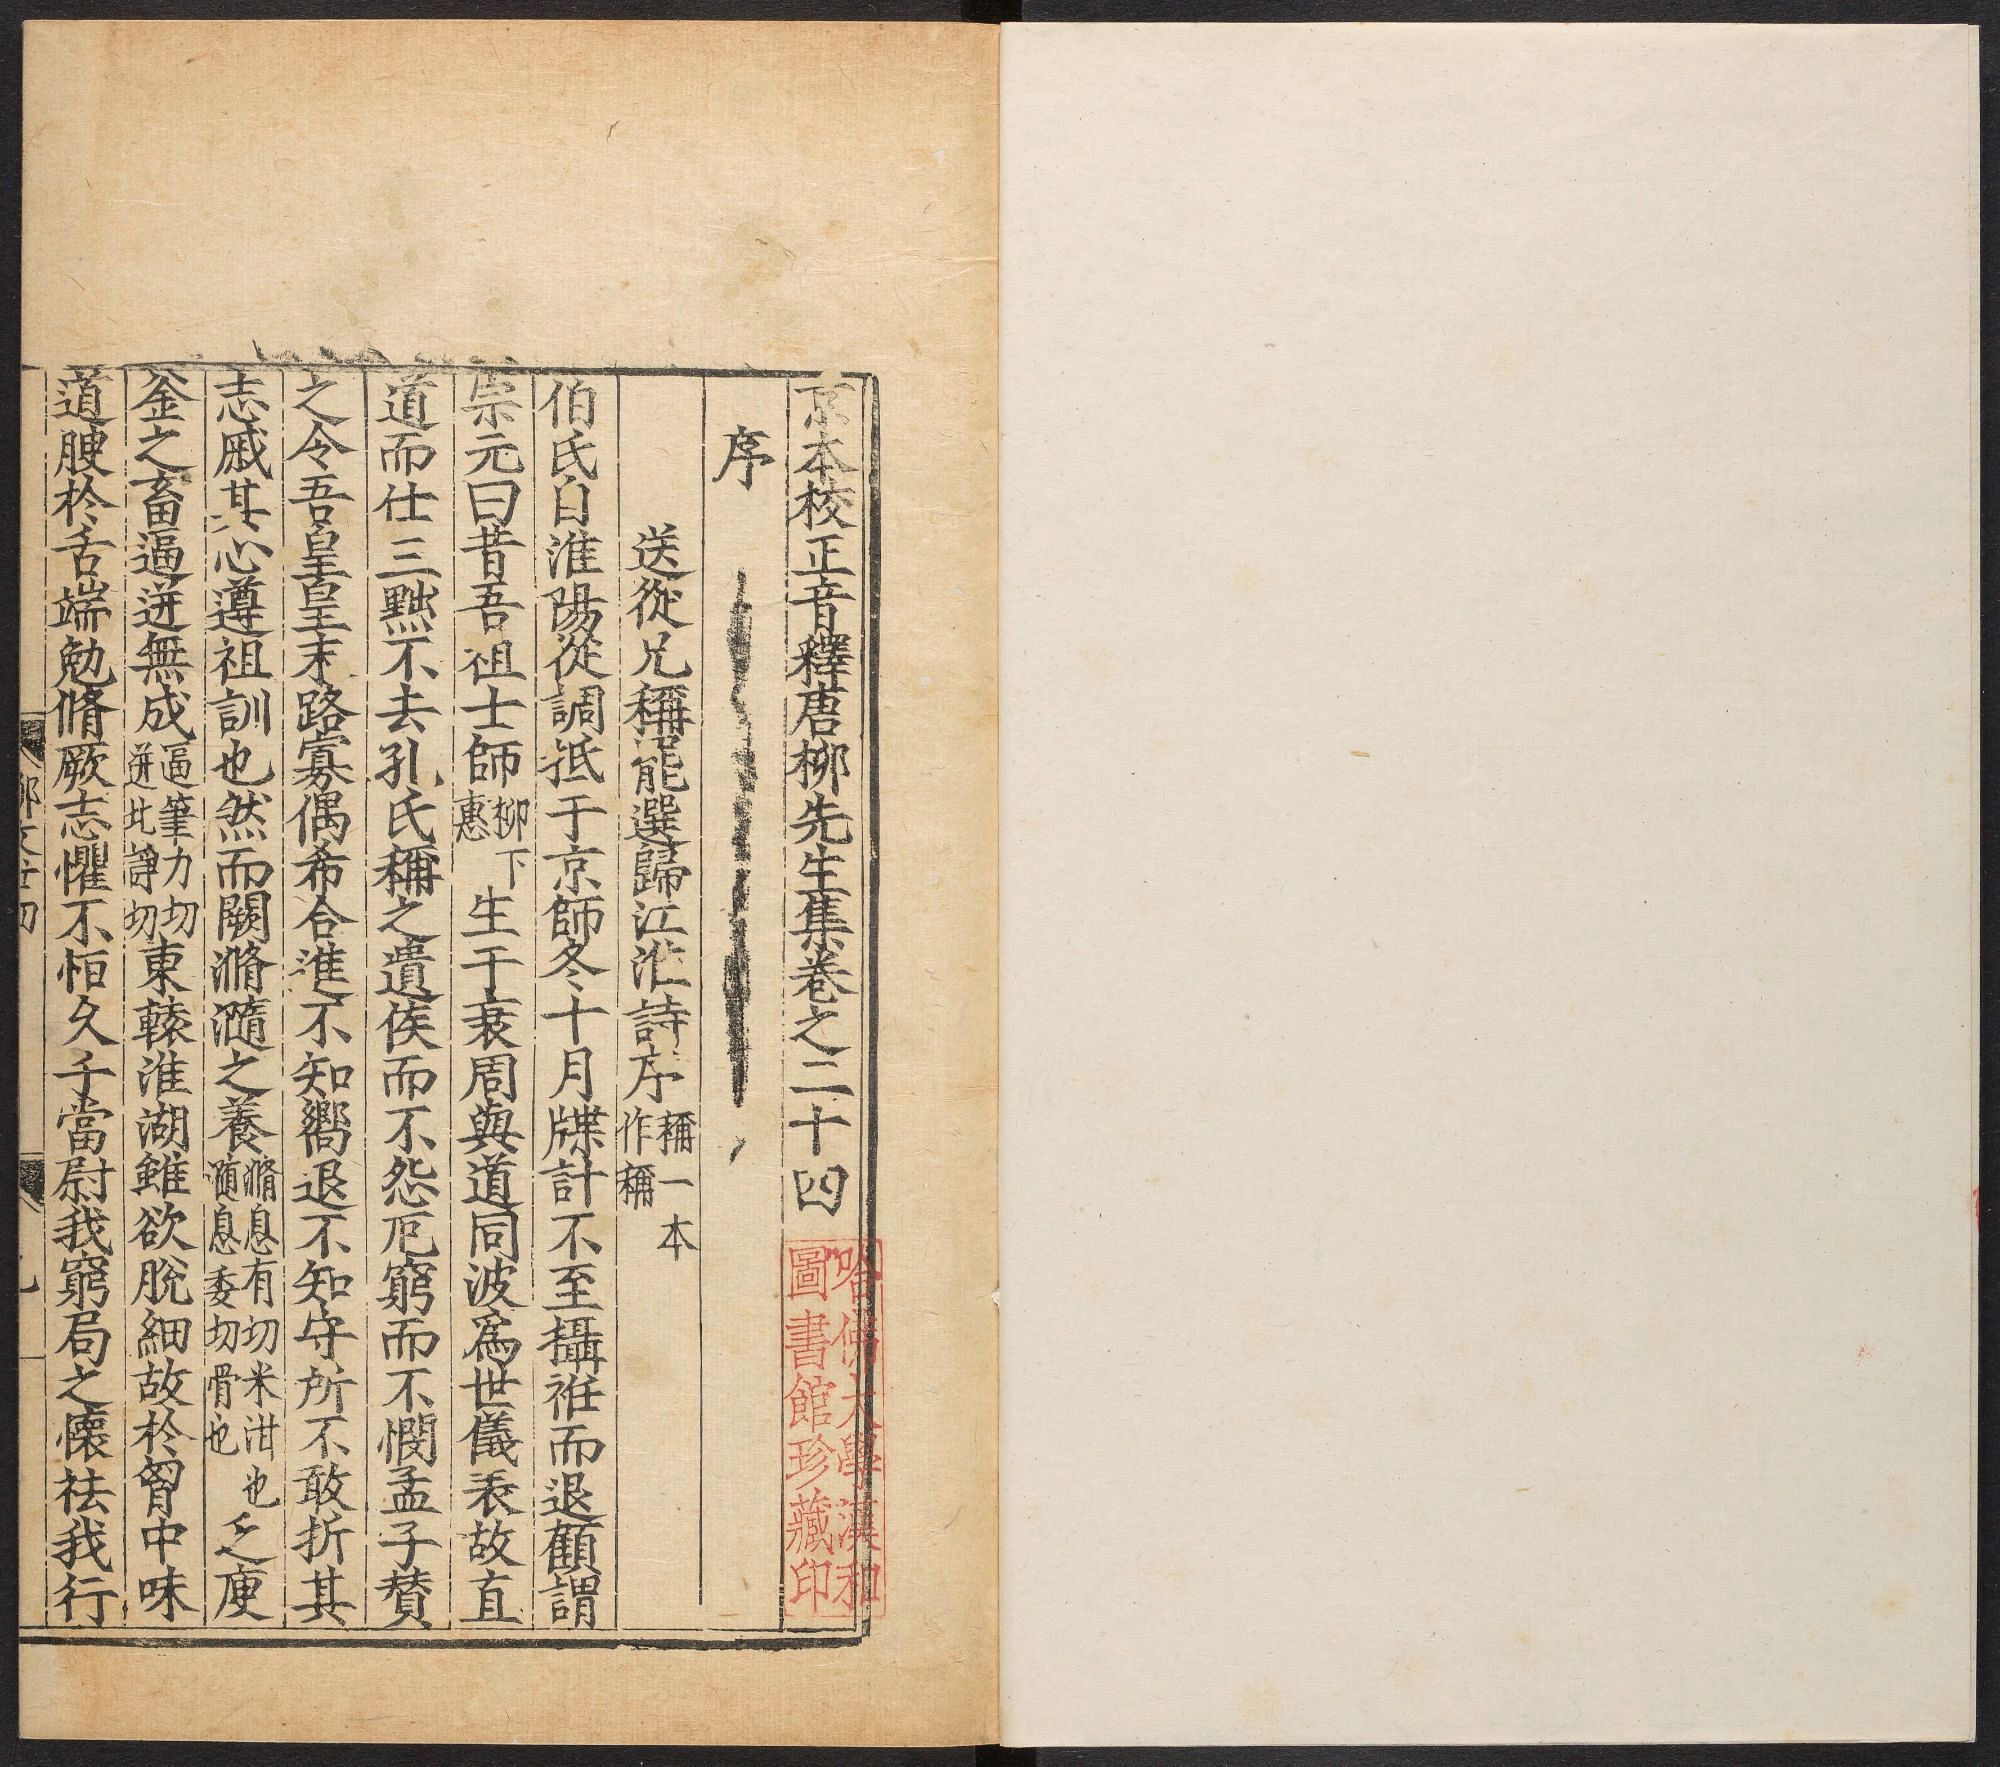 京本校正音釋唐柳先生集卷之二十四
序
送從兄稱罷選歸江淮詩序 稱一本作稱
伯氏自淮陽從調抵于京師冬十月牒計不至攝袵而退顧謂
宗元曰昔吾祖士師柳下惠生于衰周與道同波爲世儀表故直
道而仕三黜不去孔氏稱之遺佚而不怨厄窮而不憫孟子賛
之今吾皇皇末路寡偶希合進不知嚮退不知守所不敢折其
志慼其心遵祖訓也然而闕滫瀡之養滫息有切米泔也瀡息委切骨也乏庾
釜之畜逼迸無成逼筆力切迸北諍切東轅淮湖雖欲脫細故於胷中味
道腴於舌端勉脩厥志懼不恒久子當尉我窮局之懷祛我行
哈佛大學漢和
圖書館珍藏印